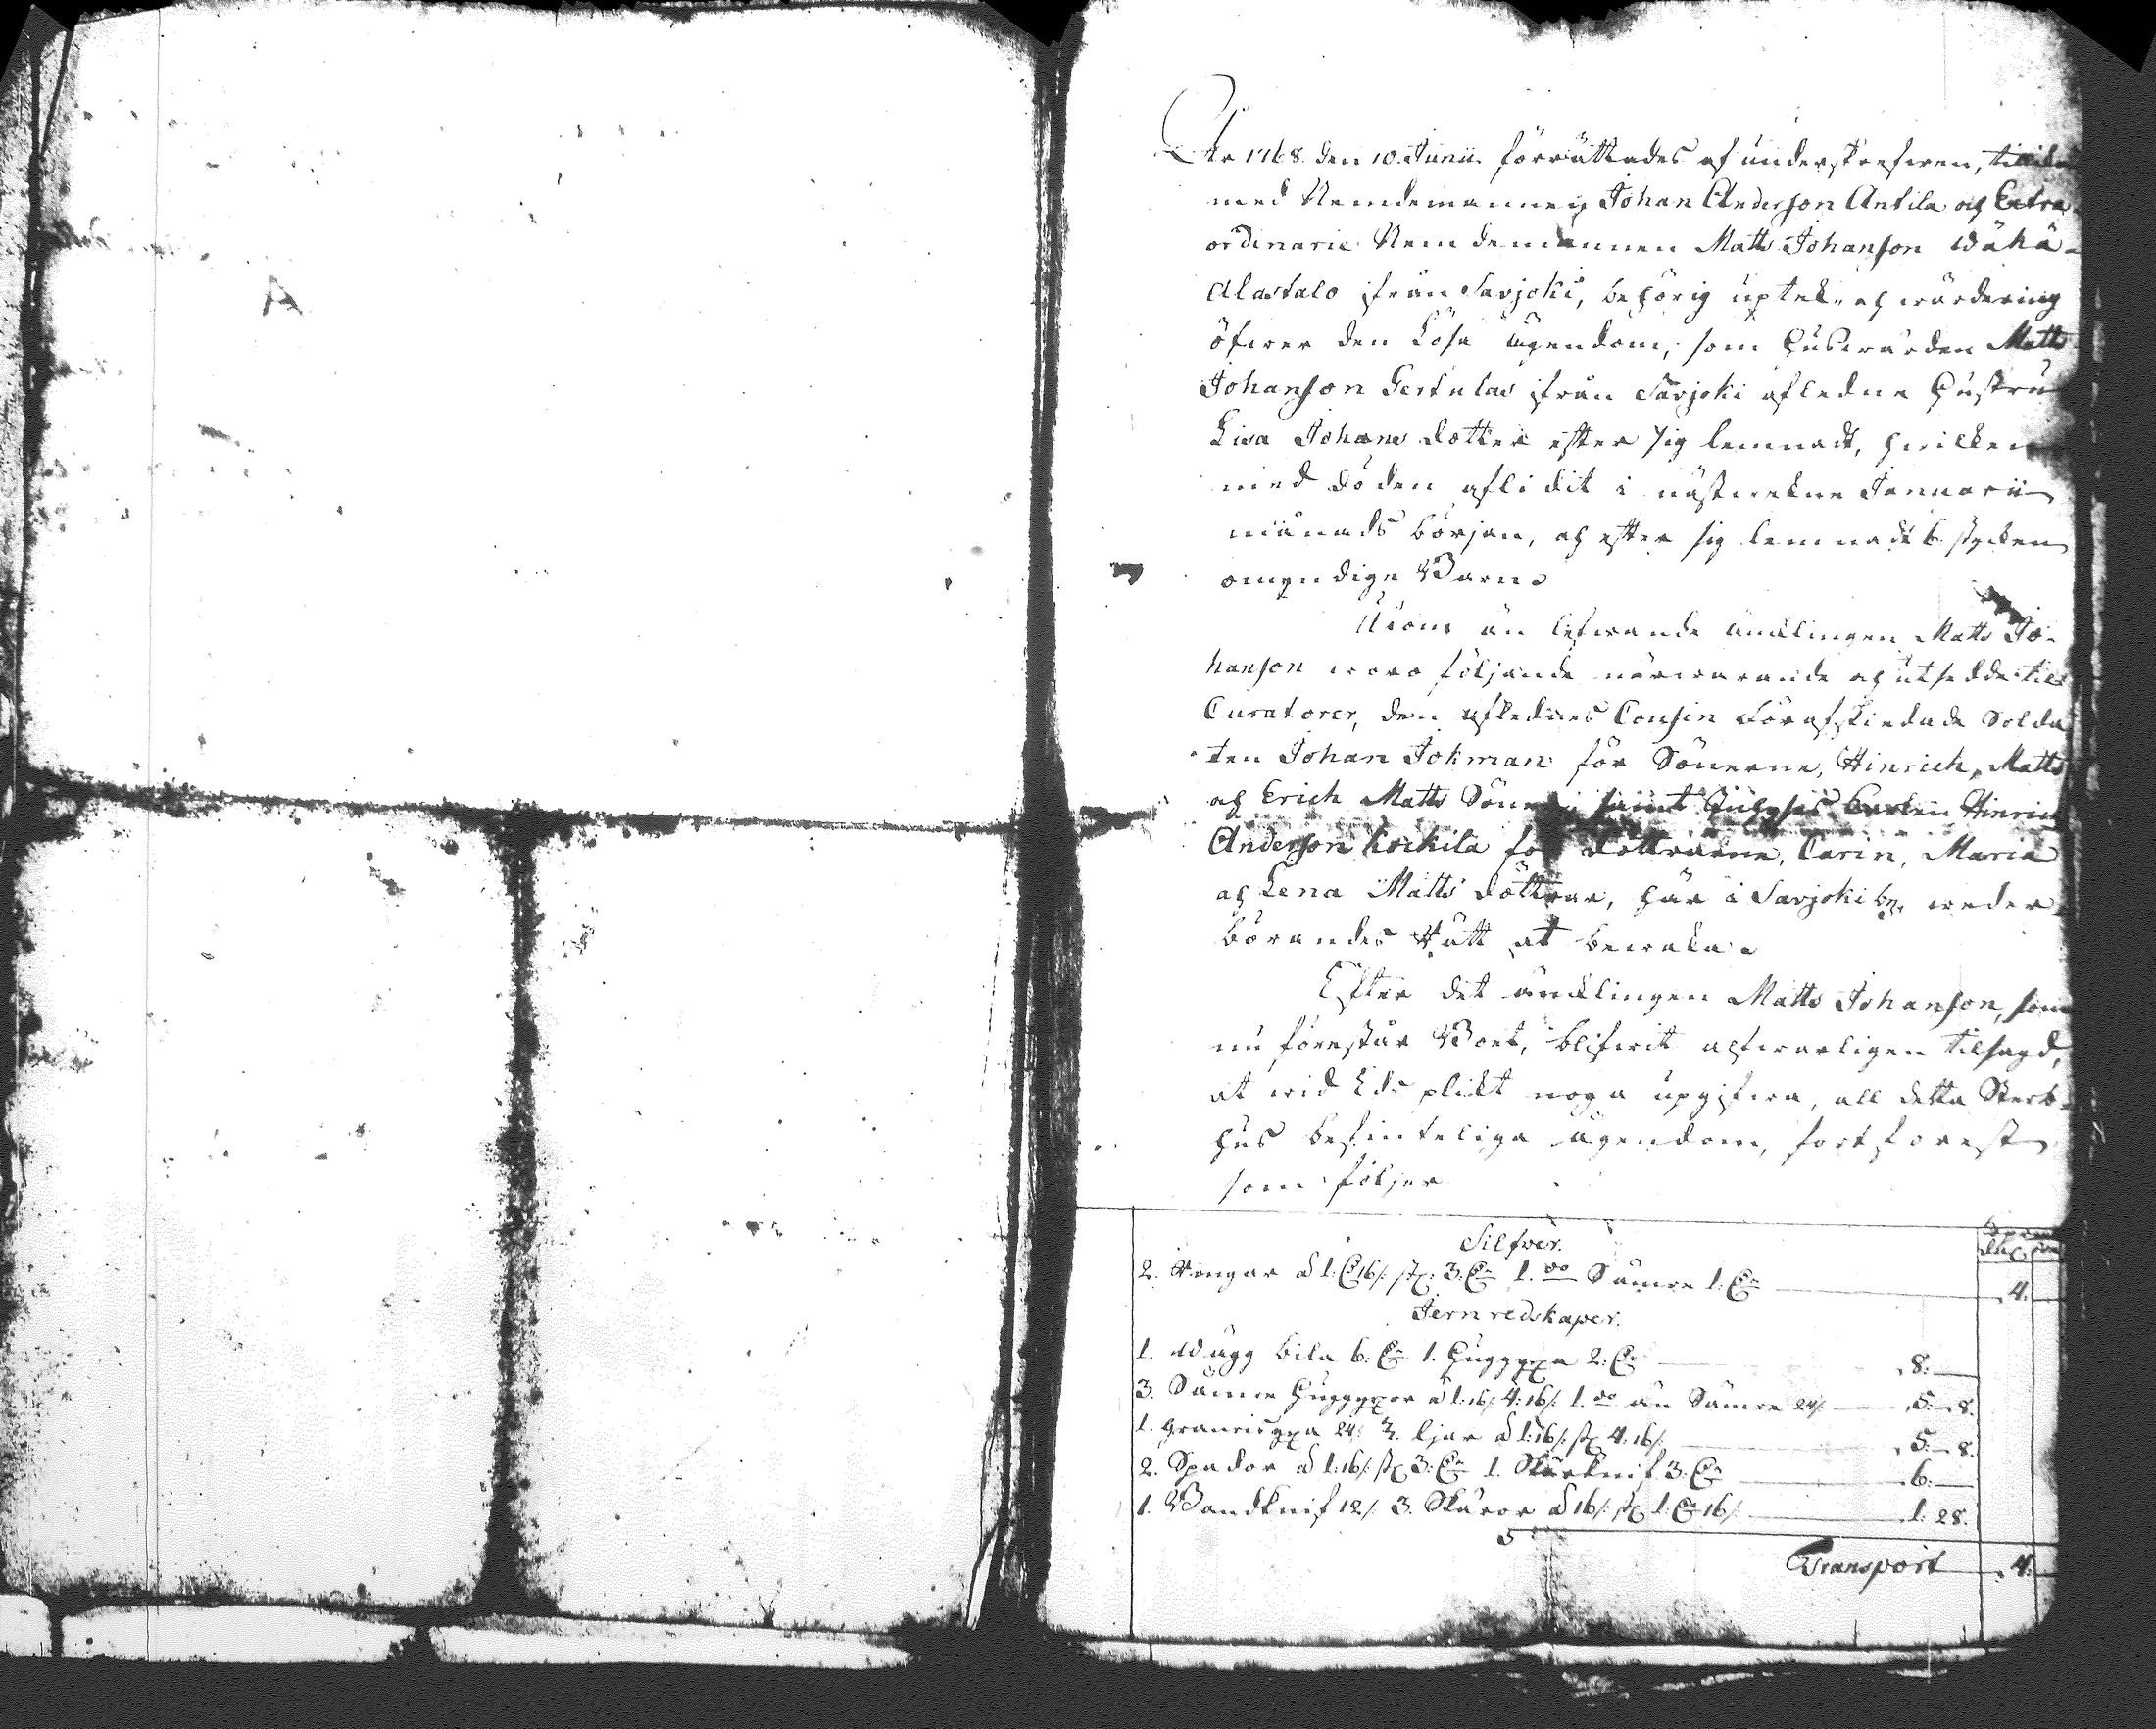 År 1768. den 10. Junii. förrättades af underskrefwen, tillika
med Nemdemannen Johan Anderson Antila och Extra
ordinarie Nemdemannen Matts Johanson Wähä-
Alastalo ifrån Savjoki, behörig uptek- och wärdering
öfwer den Lösa Ägendom, som Huswärden Matts
Johanson Gertulas ifrån Savjoki afledne Hustru
Lisa Johans dotter efter sig lemnadt, hwilken
med döden aflidit i nästwekne Januarii
månads början, och efter sig lemnadt 6 stycken
omyndige Barn.
än lefwande änklingen Matts Jo-
hanson woro följande närwarande och utsedde til
Curatorer, den aflednes Cousin Förafskiedade Solda
ten Johan Jokman för Sönerne, Hinrich, Matts
och Erich Matts Söner, samt Karlen Hinrich
Anderson Kockila för döttrarne, Carin, Maria
och Lena Matts döttrar, här i Savjoki by, weder-
börandes Rätt at bewaka.
Efter det änklingen Matts Johanson, som
nu förestår Boet, blifwit alfwarligen tilsagd,
at wid Eds plikt noga upgifwa, all detta Sterb-
hus befinteliga ägendom, fortforest
som följer
Silfver.
2. Ringar á 1. 16/. st. 3. 1. do Sämre 1. 4.
Jernredskaper.
1. Wägg bila 6. 1. Huggyxa 2. 8.
3. Sämre Huggyxor á 1:16/. 4:16/. 1. do än Sämre 24/. 5. 8.
1. Granrisyxa 24/. 3. ljar á 1:16/. st. 4:16/. 5. 8.
2. Spador á 1:16/. st. 3. 1. Skärknif 3. 6.
1. Bandknif 12/. 3. Skäror á 16/. st. 1. 16/. 1. 28.
Transport 4.